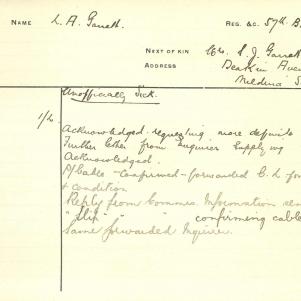 NAME L. A. Garrett. REG. &C. 57th B
NEXT OF KIN S. J. Garrett
ADDRESS Deakin Aven
Mildura S
Unofficially Sick.
1/4. Acknowledged - requesting more definite
Further letter from Inquirer supplying
Acknowledged.
P/Cable - confirmed - forwarded C. L. for
& condition
Reply from Commss. Information re
"Slip" " " confirming cable
Same forwarded Inquirer.